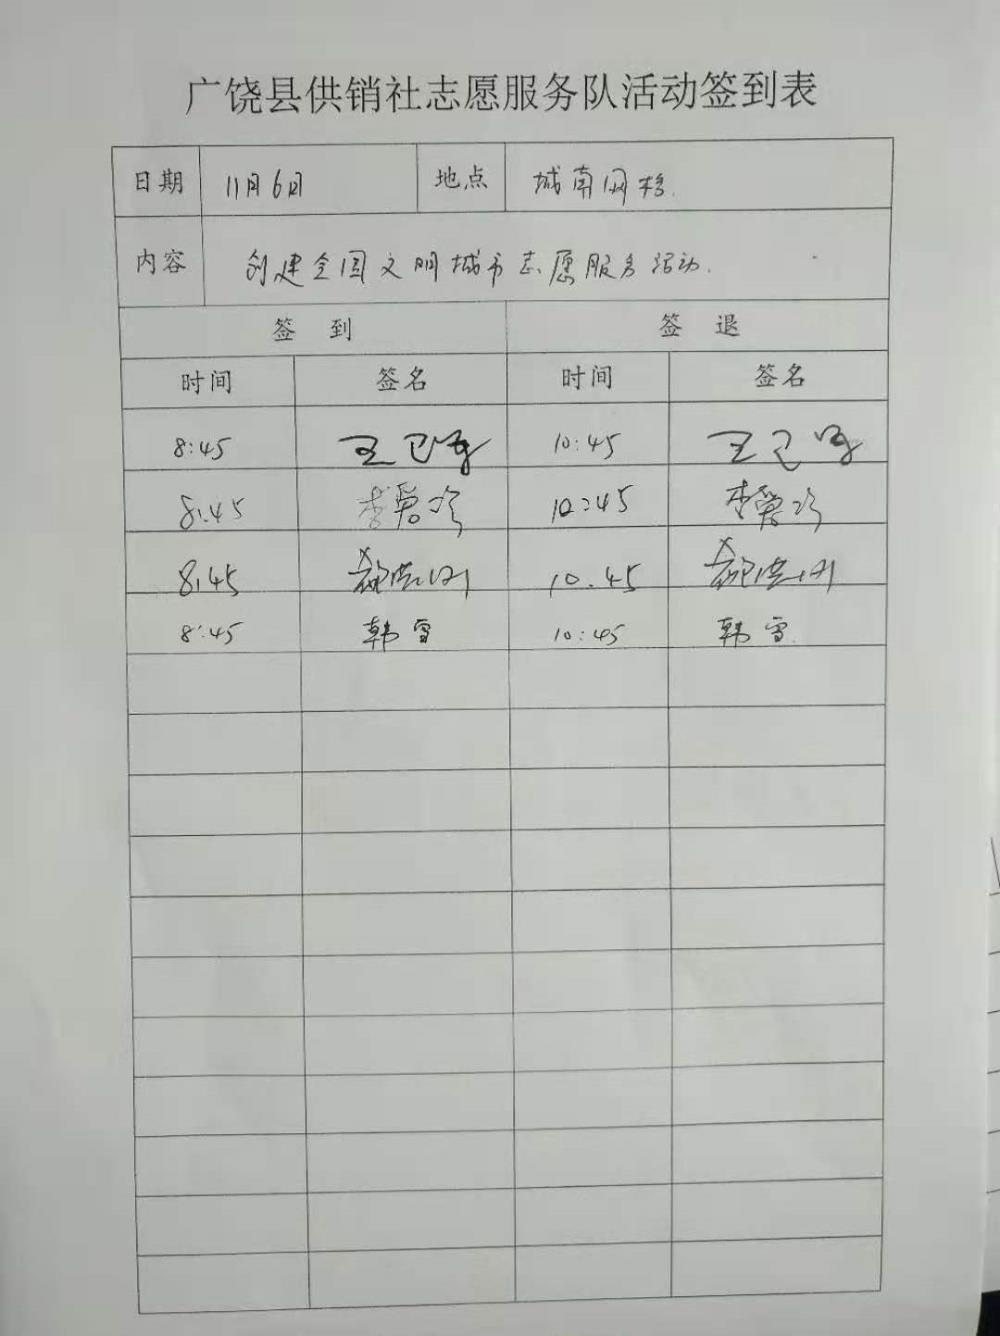 广饶县供销社志愿服务队活动签到表
日期 11月6日 地点 城南网格.
内容 创建全国文明城市志愿服务活动.
签 到 签 退
时间 签名 时间 签名
8:45 10:45
8:45 10:45
8:45 10.45
8:45 韩雪 10:45 韩雪